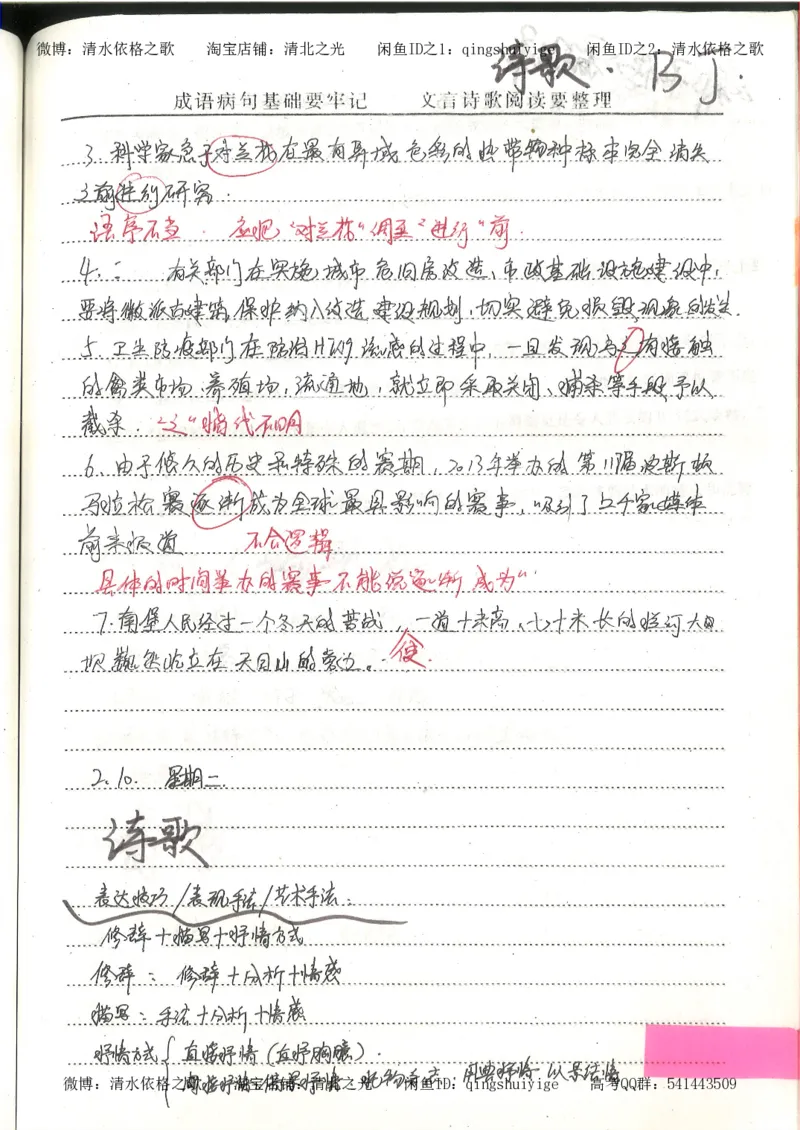 微博：清水依格之歌 淘宝店铺：清北之光 闲鱼ID之1：qingshuiyige 闲鱼ID之2：清水依格之歌
诗歌. BJ.
成语病句基础要牢记 文言诗歌阅读要整理
3. 科学家急于对兰花在最有异域色彩的热带物种标本完全消失
之前进行研究.
语序不当. 应把“对兰花”调至“进行”前.
4. 二 有关部门在实施城市危旧房改造、市政基础设施建设中,
要将徽派古建筑保护纳入改造建设规划, 切实避免损毁现象的发生.
5. 卫生防疫部门在防治H7N9流感的过程中, 一旦发现与之有接触
的禽类市场、养殖场, 流通地, 就立即采取关闭、捕杀等手段予以
截杀. “之”指代不明
6. 由于悠久的历史和特殊的赛期, 2013年举办的第117届波斯顿
马拉松赛逐渐成为全球最具影响的赛事, 吸引了上千家媒体
前来报道 不合逻辑
具体的时间举办的赛事不能说逐渐成为“
7. 南堡人民经过一个冬天的苦战, 一道十米高、七十米长的拦河大
坝巍然屹立在天目山的旁边. 使.
2.10. 星期二
诗歌
表达技巧/表现手法/艺术手法:
修辞+描写+抒情方式
修辞: 修辞+分析+情感
描写: 手法+分析+情感
抒情方式 { 直接抒情 (直抒胸臆).
以景结情
微博：清水依格之歌 淘宝店铺：清北之光 闲鱼ID：qingshuiyige 高考QQ群：541443509